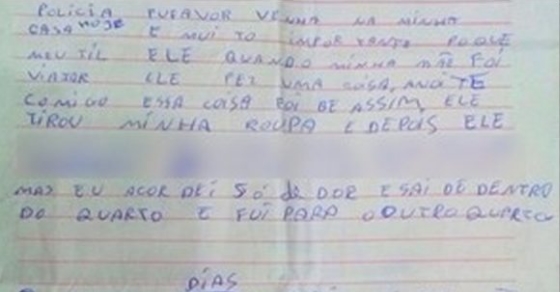 POLICIA PUFAVOR VENHA NA MINHA
CASA HOJE E MUITO IMPORTANTE POQUE
MEU TIL ELE QUANDO MINHA MÃE FOI
VIAJOR ELE FEZ UMA COISA, ANOITE
COMIGO ESSA COISA FOI DE ASSIM, ELE
TIROU MINHA ROUPA E DEPOIS ELE
MAZ EU ACORDEI SÓ de DOR E SAI DE DENTRO
DO QUARTO E FUI PARA O OUTRO QUARTO
DIAS